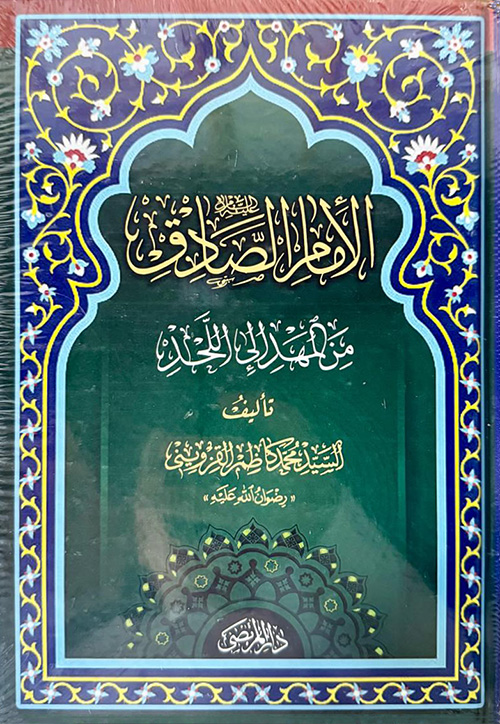 الأمام الصَّادِق عليه السلام
مِنَ المَهْدِ إلى اللَّحَدْ
تأليفُ
السَّيّدْ مُحمّد كَاظم القَزوينيّ
«رِضوَانُ اللهِ عَلَيهِ»
دار المرتضى